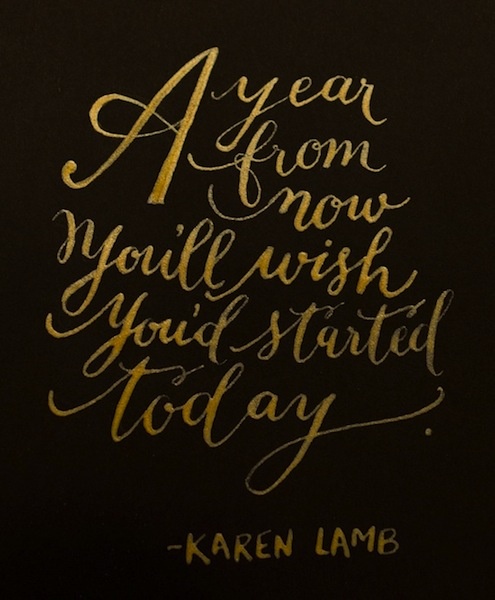 A year
from
now
You'll wish
you'd started
today.
-KAREN LAMB